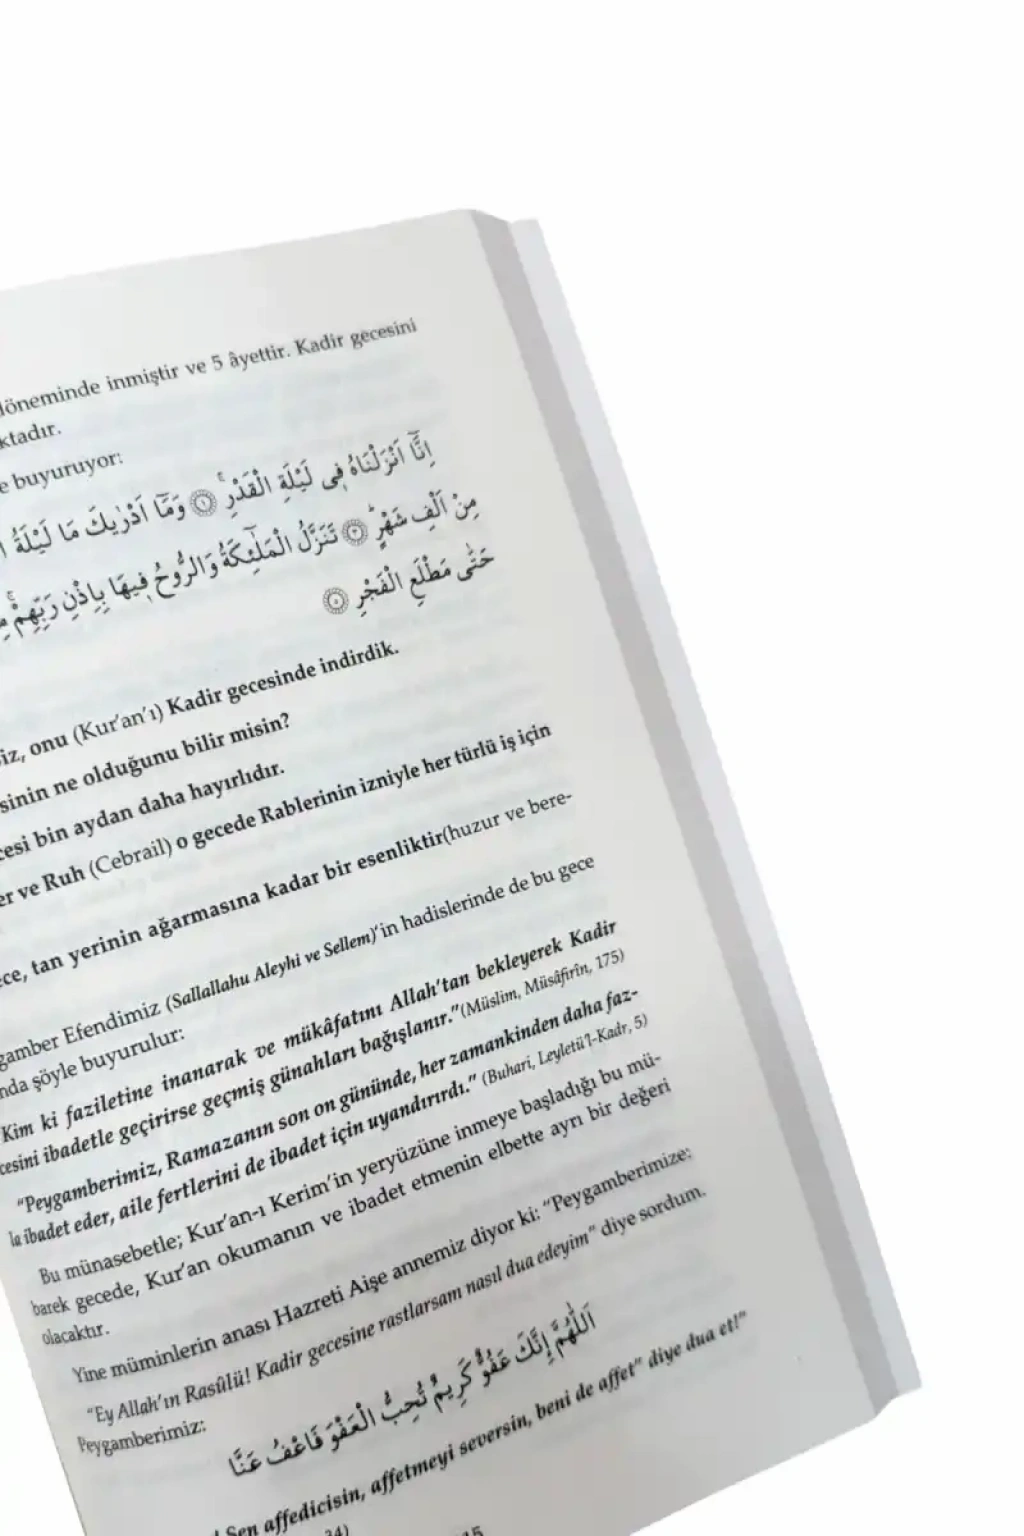 döneminde inmiştir ve 5 âyettir. Kadir gecesini
ktadır.
e buyuruyor:
اِنَّٓا اَنْزَلْنَاهُ ف۪ي لَيْلَةِ الْقَدْرِۚ ﴿١﴾ وَمَٓا اَدْرٰيكَ مَا لَيْلَةُ
مِنْ اَلْفِ شَهْرٍۜ ﴿٣﴾ تَنَزَّلُ الْمَلٰٓئِكَةُ وَالرُّوحُ ف۪يهَا بِاِذْنِ رَبِّهِمْۚ
حَتّٰى مَطْلَعِ الْفَجْرِ ﴿٥﴾
iz, onu (Kur'an'ı) Kadir gecesinde indirdik.
sinin ne olduğunu bilir misin?
cesi bin aydan daha hayırlıdır.
er ve Ruh (Cebrail) o gecede Rablerinin izniyle her türlü iş için
ece, tan yerinin ağarmasına kadar bir esenliktir(huzur ve bere-
gamber Efendimiz (Sallallahu Aleyhi ve Sellem)'in hadislerinde de bu gece
nda şöyle buyurulur:
Kim ki faziletine inanarak ve mükâfatını Allah'tan bekleyerek Kadir
cesini ibadetle geçirirse geçmiş günahları bağışlanır."(Müslim, Müsâfirîn, 175)
"Peygamberimiz, Ramazanın son on gününde, her zamankinden daha faz-
la ibadet eder, aile fertlerini de ibadet için uyandırırdı." (Buhari, Leyletü'l-Kadr, 5)
Bu münasebetle; Kur'an-ı Kerim'in yeryüzüne inmeye başladığı bu mü-
barek gecede, Kur'an okumanın ve ibadet etmenin elbette ayrı bir değeri
olacaktır.
Yine müminlerin anası Hazreti Aişe annemiz diyor ki: "Peygamberimize:
"Ey Allah'ın Rasûlü! Kadir gecesine rastlarsam nasıl dua edeyim" diye sordum.
Peygamberimiz:
اَللّٰهُمَّ اِنَّكَ عَفُوٌّ كَرِيمٌ تُحِبُّ الْعَفْوَ فَاعْفُ عَنَّا
! Sen affedicisin, affetmeyi seversin, beni de affet" diye dua et!"
34)
15